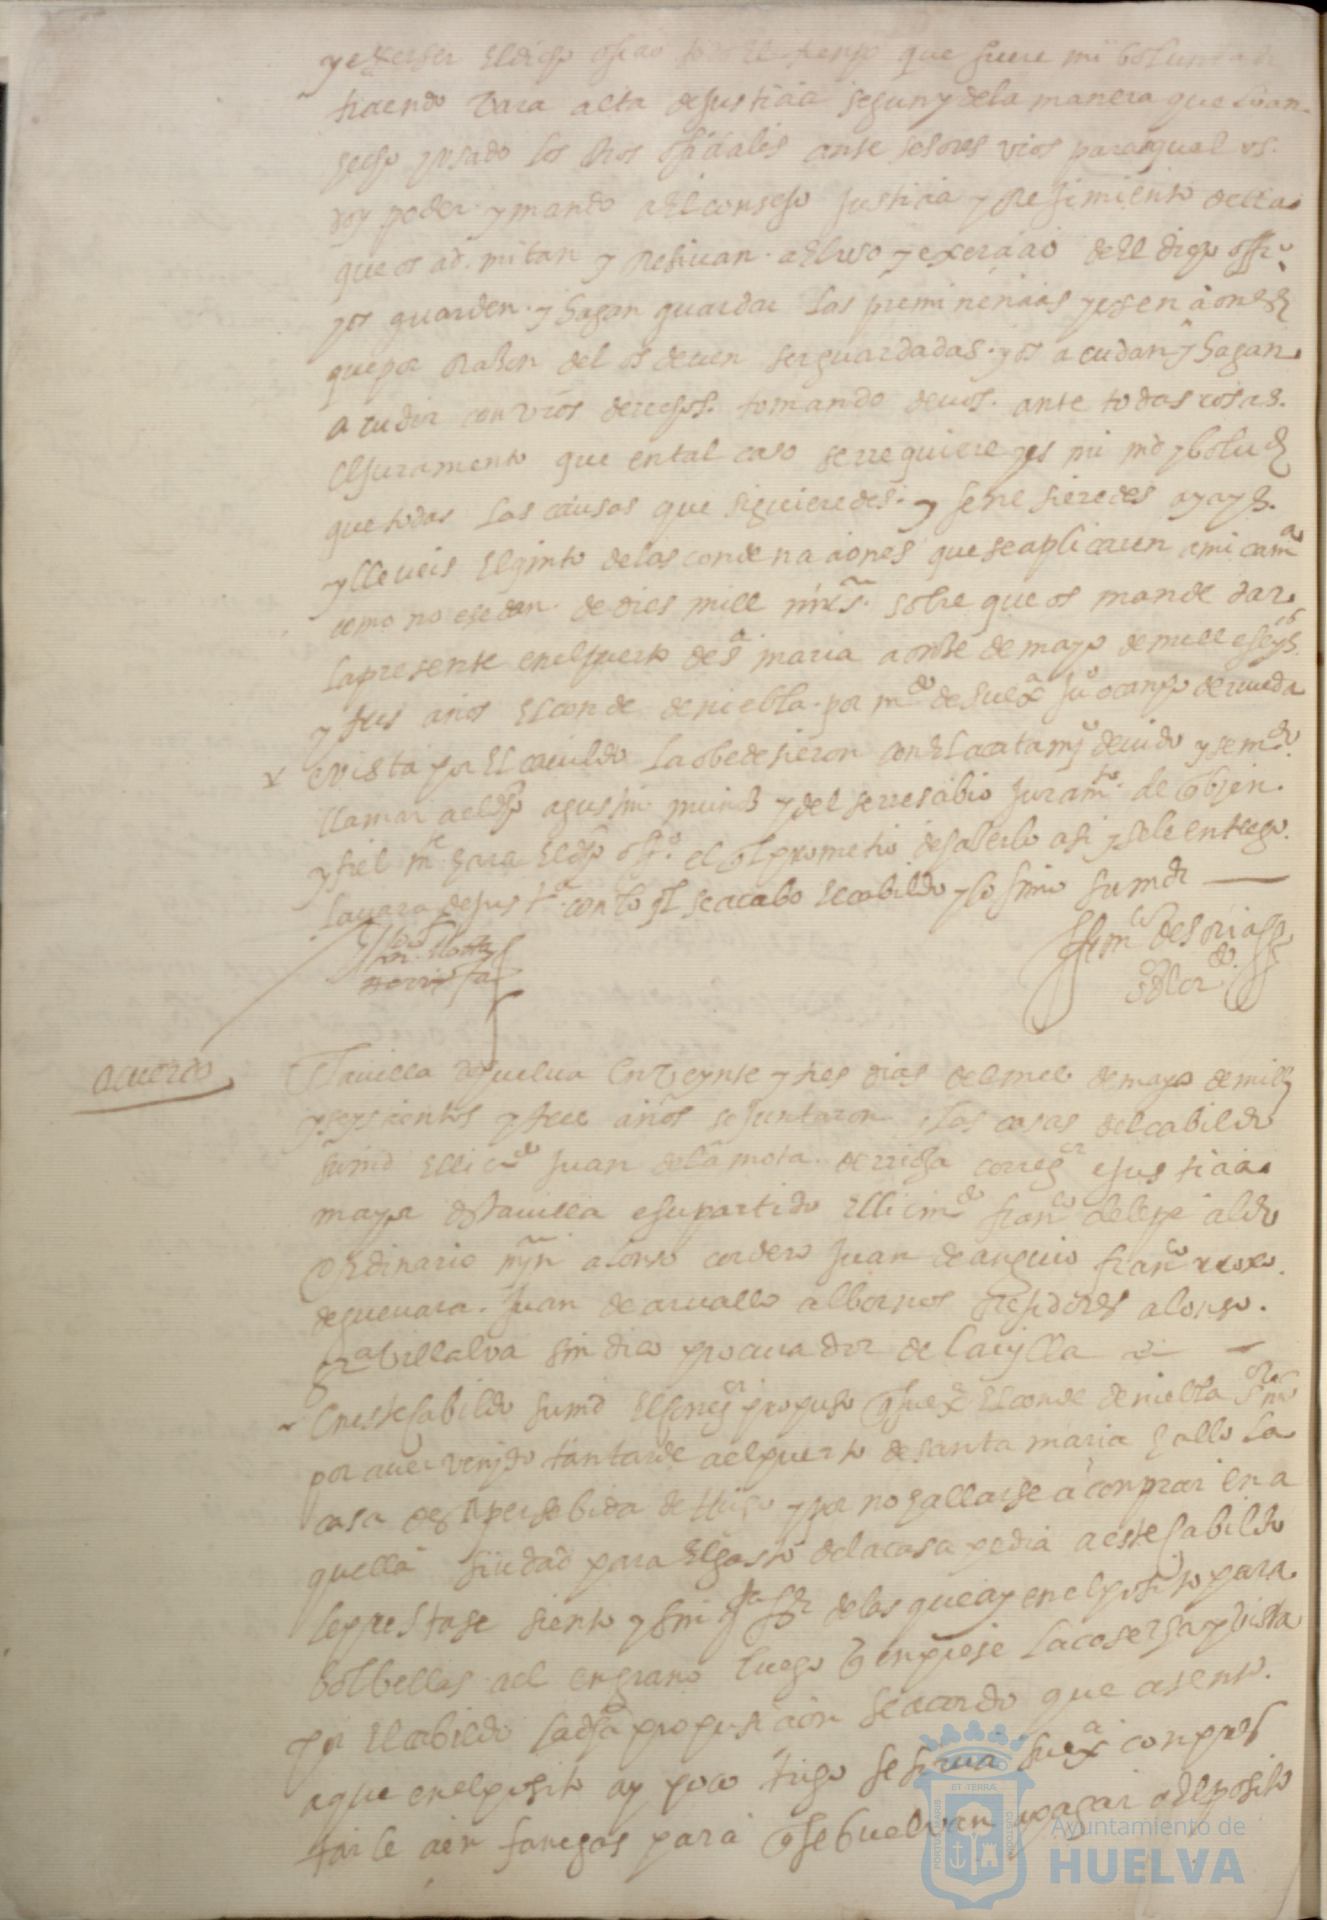 y exerser El dicho ofiçio todo El tienpo que fuere mi boluntad
traendo Vara alta de Justiçia segun y de la manera que lo an
hecho y usado los otros ofiçiales ante sesores vros para lo qual os
doy poder y mando a El consejo Justiçia y Rejimiento della
que os admitan y Resivan a El uso y exerçiçio de El dicho offio
y os guarden y hagan guardar las preminençias y esençiones
que por Razon del os deven ser guardadas y os acudan y hagan
acudir con vros derechos tomando de vos ante todas cosas
El juramento que en tal caso se rrequiere y es mi md y bolud
que todas las causas que siguieredes y fenesieredes ayays
y lleveis El quinto de las condenaçiones que se aplicaren a mi cama
como no esedan de dies mill mrs sobre que os mande dar
la presente en el puerto de sta maria a onse de mayo de mill e seysos
y tres años El conde de niebla por mdo de su exa Juo ocanpo de rueda
e vista por El cavildo la obedesieron con El acatamo devido y se mdo
llamar a el dho agustin muños y del se rresibio Juramto de bien
y fiel mte hara El dho offo el ql prometio de haserlo asi y se le entrego
la vara de Justa con lo ql se acabo El cabildo y lo firmo su md
El ldo Jun de la Mota
derricha
franco desoria
scror
acuerdo
En la villa de huelva En Veynte y tres dias del mes de mayo de mill
y seysientos y tres años se juntaron En las casas del cabildo
su md El licendo Juan de la mota derricha corregor e justiçia
mayor desta villa e su partido El licendo franco de lepe alde
Ordinario myn alonso cordero Juan de anguio franco rroxo
de guevara Juan de arvallo albornos Regidores alonso
gra Villalva sindico procurador de la villa
En este Cabildo su md El corregor propuso q su exa El conde de niebla
por aver venydo tan tarde a el puerto de santa maria hallo la
casa desapersebida de trigo y por no hallarse a conprar en a
quella siudad para El gasto de la casa pedia a este Cabildo
le prestase siento y sinqta fgs de las que ay en el posito para
bolbellas a el en grano luego q enpiese la cosecha y vista
por El cabildo la dha propusiçion se acordo que atento
a que en el posito ay poco trigo se sirva su exa con pres
tarle çien fanegas para q se buelvan y pagar a El posito
Ayuntamiento de
HUELVA